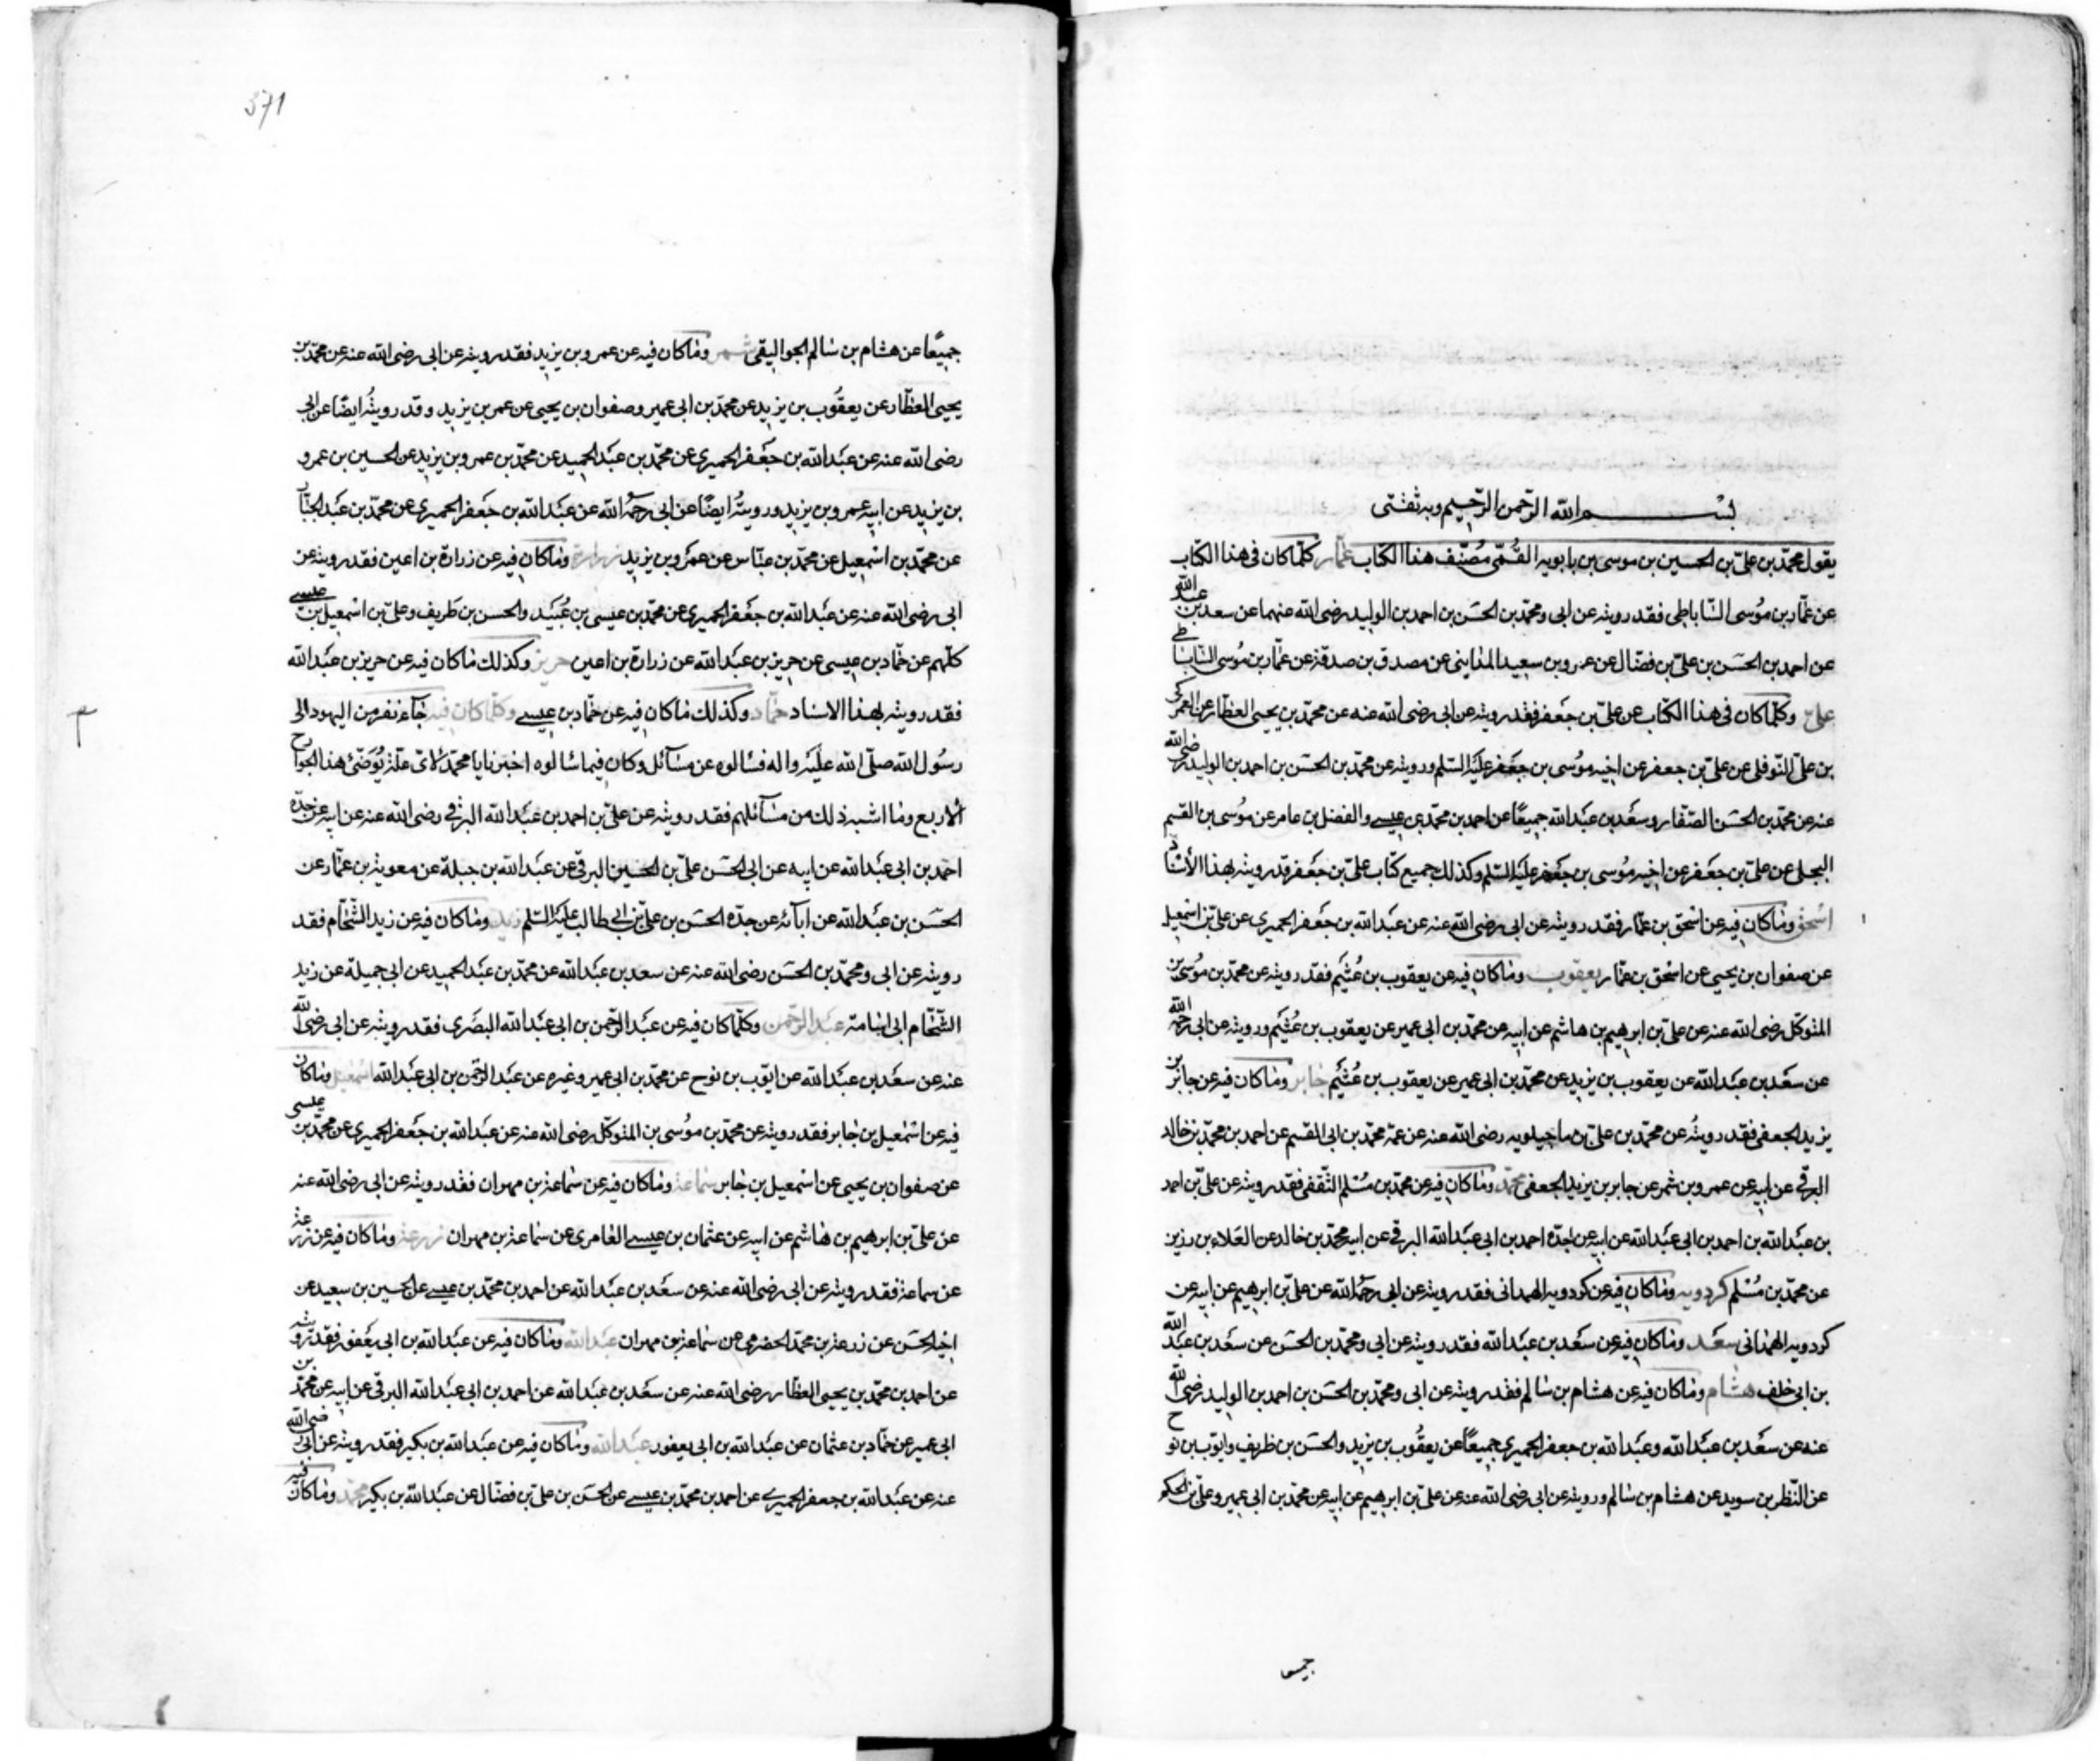 بسم الله الرحمن الرحيم وبه ثقتى
يقول محمّد بن علىّ بن الحسين بن موسى بن بابويه القُمّى مُصنّف هذا الكتاب عمّار كلّما كان فى هذا الكتاب
عن عمّار بن مُوسى السّاباطى فقد رويته عن ابى ومحمّد بن الحسَن بن احمد بن الوليد رضى الله عنهما عن سعد بن عبد الله
عن احمد بن الحسَن بن علىّ بن فضّال عن عمرو بن سعيد المداينى عن مصدق بن صدقة عن عمّار بن مُوسى السّاباطى
علىّ وكلّما كان فى هذا الكتاب عن علىّ بن جعفر فقد رويته عن ابى رضى الله عنه عن محمّد بن يحيى العطّار عن العمركى
بن علىّ النّوفلى عن علىّ بن جعفر عن اخيه مُوسى بن جعَفر عليَه السّلم ورويته عن محمّد بن الحسَن بن احمد بن الوليد رضى الله
عنه عن محمّد بن الحسَن الصّفار وسعَد بن عبَد الله جميعًا عن احمد بن محمّد بن عيسے والفضل بن عامر عن مُوسى بن القسم
البجلى عن علىّ بن جعَفر عن اخيه مُوسى بن جعَفر عليَه السّلم وكذلك جميع كتاب علىّ بن جعَفر قد رويته بهذا الأسناد
اسْحق وماكان فيه عن اسْحق بن عمّار فقد رويته عن ابى رضى الله عنه عن عبدالله بن جعَفر الحميرى عن علىّ بن اسْمعيل
عن صفوان بن يحيى عن اسْحق بن عمّار يعقوب وماكان فيه عن يعقوب بن عُثيَم فقد رويته عن محمّد بن مُوسى بن
المتوكّل رضى الله عنه عن علىّ بن ابرهيم بن هاشم عن ابيه عن محمّد بن ابى عمير عن يعقوب بن عُثيَم ورويته عن ابى رحمه الله
عن سعَد بن عبَد الله عن يعقوب بن يزيد عن محمّد بن ابى عمير عن يعقوب بن عُثيَم جابر وماكان فيه عن جابر بن
يزيد الجعفى فقد رويتُه عن محمّد بن علىّ بن ماجيلويه رضى الله عنه عن عمّه محمّد بن ابى القسم عن احمد بن محمّد بن خالد
البرقے عن ابيه عن عمرو بن شمر عن جابر بن يزيد الجعفى محمّد وماكان فيه عن محمّد بن مُسْلم الثّقفى فقد رويته عن علىّ بن احمد
بن عبَد الله بن احمد بن ابى عبَد الله عن ابيه عن جدّه احمد بن ابى عبَد الله البرقى عن ابيه محمّد بن خالد عن العَلاء بن رزين
عن محمّد بن مُسْلم كردويه وماكان فيه عن كردويه الهمدانى فقد رويته عن ابى رحمهُ الله عن علىّ بن ابرهيم عن ابيه عن
كردويه الهمدانى سعَد وماكان فيه عن سعَد بن عبَد الله فقد رويته عن ابى ومحمّد بن الحسَن عن سعَد بن عبَد الله
بن ابى خلف هشام وماكان فيه عن هشام بن سالم فقد رويته عن ابى ومحمّد بن الحسَن بن احمد بن الوليد رضى الله
عنه عن سعَد بن عبَد الله وعبَد الله بن جعفر الحميرى جميعًا عن يعقُوب بن يزيد والحسَن بن ظريف وايّوب بن نوح
عن النّظر بن سويد عن هشام بن سالم ورويته عن ابى رضى الله عنه عن علىّ بن ابرهيم عن ابيه عن محمّد بن ابى عمير وعلىّ بن الحكم
جميعا
371
جميعًا عن هشام بن سالم الجواليقى وماكان فيه عن عمرو بن يزيد فقد رويته عن ابى رضى الله عنه عن محمّد بن
يحيى العطّار عن يعقُوب بن يزيد عن محمّد بن ابى عمير وصفوان بن يحيى عن عمر بن يزيد وقد رويتُه ايضًا عن ابى
رضى الله عنه عن عبَد الله بن جعَفر الحميرى عن محمّد بن عبَد الحميد عن محمّد بن عمرو بن يزيد عن الحسين بن عمرو
بن يزيد عن ابيه عمرو بن يزيد ورويتُه ايضًا عن ابى رحمهُ الله عن عبَد الله بن جعَفر الحميرى عن محمّد بن عبَد الجبّار
عن محمّد بن اسْمعيل عن محمّد بن عبّاس عن عمَرو بن يزيد زرارة وماكان فيه عن زرارة بن اعين فقد رويته عن
ابى رضى الله عنه عن عبَد الله بن جعَفر الحميرى عن محمّد بن عيسى بن عُبيَد والحسن بن ظريف وعلىّ بن اسْمعيل بن عيسے
كلّهم عن حمّاد بن عيسى عن حريز بن عبَد الله عن زرارة بن اعين حريز وكذلك ماكان فيه عن حريز بن عبَد الله
فقد رويته بهذا الاسناد حمّاد وكذلك ماكان فيه عن حمّاد بن عيسے وكلّماكان فيه جآء نفر من اليهود الى
رسُول الله صلّى الله عليَه واله فسالوه عن مسآئل وكان فيما سالوه اخبرنا يا محمّد لاىّ علّة تُوَضّئ هذا الجوارح
الاربع وما اشبه ذلك من مسآئلهم فقد رويته عن علىّ بن احمد بن عبَد الله البرقے رضى الله عنه عن ابيه عن جدّه
احمَد بن ابى عبَد الله عن ابيه عن ابى الحسَن علىّ بن الحسين البرقى عن عبَد الله بن جبلة عن معوية بن عمّار عن
الحسَن بن عبَد الله عن ابآئه عن جدّه الحسَن بن علىّ بن ابى طالب عليَه السّلم زيد وماكان فيه عن زيد الشّحّام فقد
رويته عن ابى ومحمّد بن الحسَن رضى الله عنه عن سعد بن عبَد الله عن محمّد بن عبَد الحميد عن ابى جميلة عن زيد
الشّحّام ابى اسامة عبَد الرّحمن وكلّماكان فيه عن عبَد الرّحمن بن ابى عبَد الله البصَرى فقد رويته عن ابى رضى الله
عنه عن سعَد بن عبَد الله عن ايّوب بن نوح عن محمّد بن ابى عمير وغيره عن عبَد الرّحمن بن ابى عبَد الله اسْمعيل وماكان
فيه عن اسْمعيل بن جابر فقد رويته عن محمّد بن موسى بن المتوكّل رضى الله عنه عن عبَد الله بن جعَفر الحميرى عن محمّد بن عيسى
عن صفوان بن يحيى عن اسْمعيل بن جابر سماعة وماكان فيه عن سماعة بن مهران فقد رويته عن ابى رضى الله عنه
عن علىّ بن ابرهيم بن هاشم عن ابيه عن عثمان بن عيسے العامرى عن سماعة بن مهران زرعة وماكان فيه عن زرعة
عن سماعة فقد رويته عن ابى رضى الله عنه عن سعَد بن عبَد الله عن احمد بن محمّد بن عيسے عن الحسين بن سعيد عن
اخيه الحسَن عن زرعة بن محمّد الحضرمى عن سماعة بن مهران عبَد الله وماكان فيه عن عبَد الله بن ابى يعَفور فقد رويته
عن احمد بن محمّد بن يحيى العطّار رضى الله عنه عن سعَد بن عبَد الله عن احمد بن ابى عبَد الله البرقى عن ابيه عن محمّد بن
ابى عمير عن حمّاد بن عثمان عن عبَد الله بن ابى يعفور عبَد الله وماكان فيه عن عبَد الله بن بكير فقد رويته عن ابى رضى الله
عنه عن عبَد الله بن جعفر الحميرے عن احمد بن محمّد بن عيسے عن الحسَن بن علىّ بن فضّال عن عبَد الله بن بكير محمّد وماكان فيه